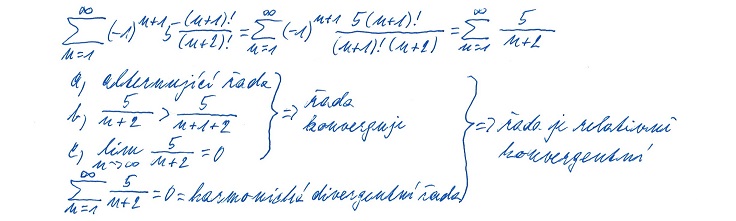 ∑_{n=1}^{∞} (-1)^{n+1} 5 (n+1)!/(n+2)! = ∑_{n=1}^{∞} (-1)^{n+1} 5(n+1)!/((n+1)!(n+2)) = ∑_{n=1}^{∞} 5/(n+2)
a, alternující řada
b, 5/(n+2) > 5/(n+1+2) } => řada konverguje
c, lim_{n→∞} 5/(n+2) = 0
∑_{n=1}^{∞} 5/(n+2) = 0 = harmonická divergentní řada } => řada je relativně konvergentní